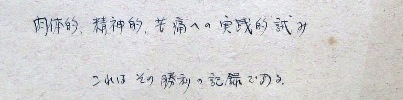 肉体的、精神的、苦痛への実践的試み
これはその勝利の記録である。